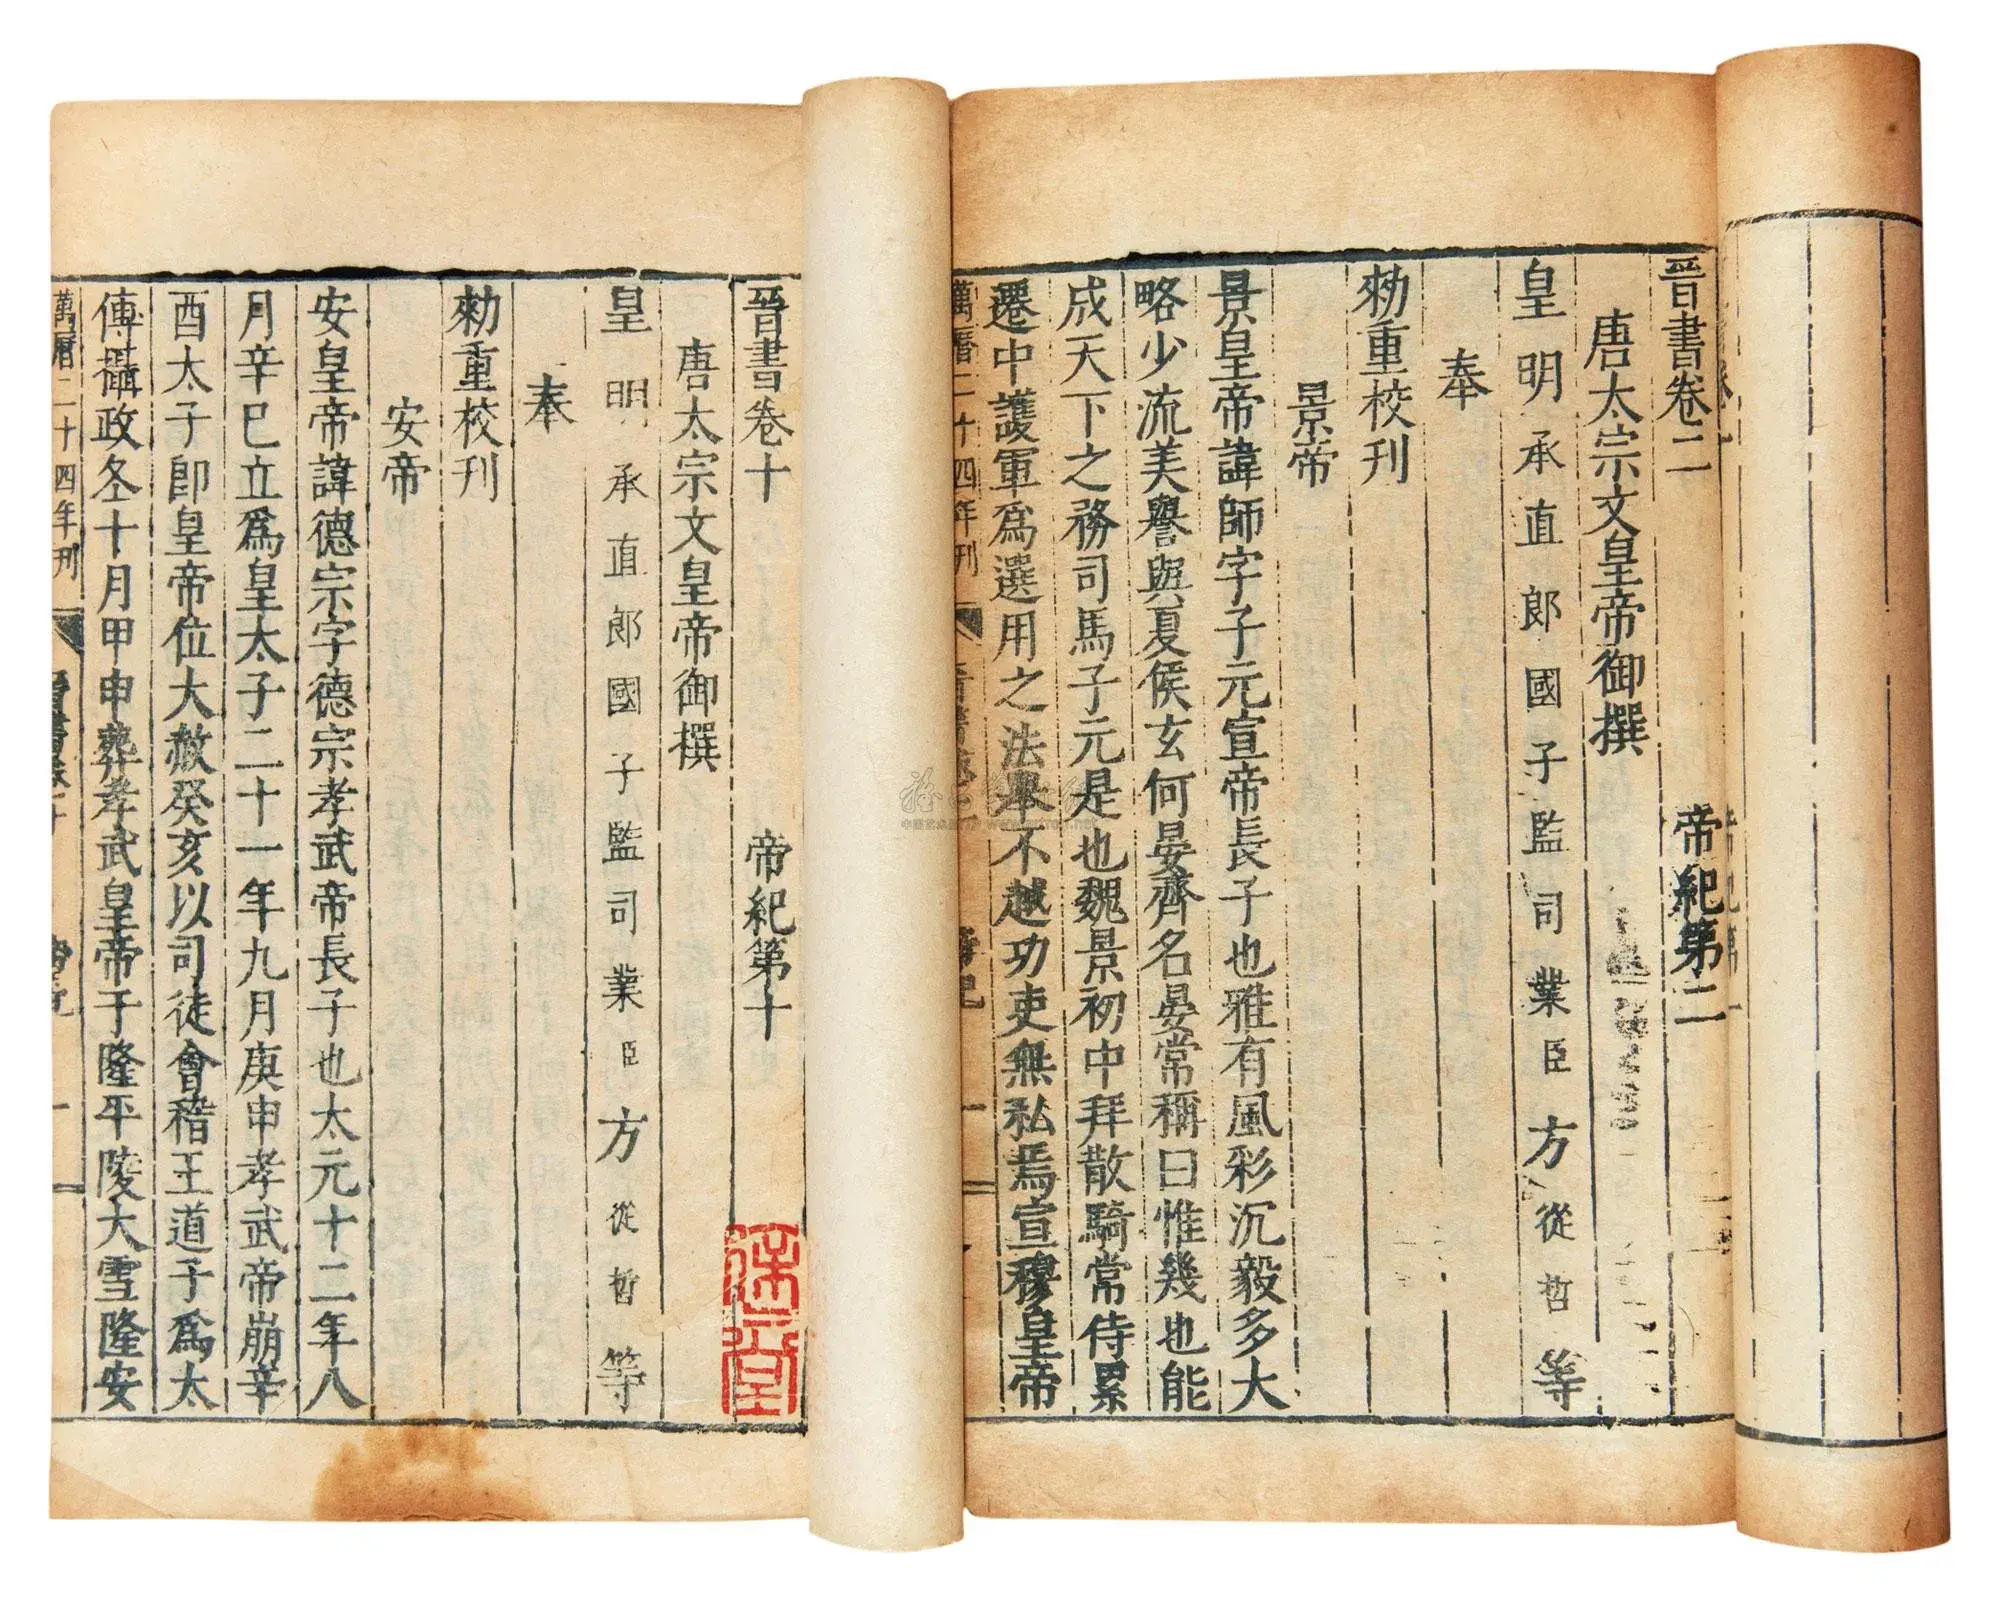 晉書卷二 帝紀第二
唐太宗文皇帝御撰
皇明承直郎國子監司業臣方從哲等
奉
勑重校刊
景帝
景皇帝諱師字子元宣帝長子也雅有風彩沉毅多大
略少流美譽與夏侯玄何晏齊名晏常稱曰惟幾也能
成天下之務司馬子元是也魏景初中拜散騎常侍累
遷中護軍爲選用之法舉不越功吏無私焉宣穆皇帝
萬曆二十四年刊
晉書卷十 帝紀第十
唐太宗文皇帝御撰
皇明承直郎國子監司業臣方從哲等
奉
勑重校刊
安帝
安皇帝諱德宗字德宗孝武帝長子也太元十二年八
月辛巳立爲皇太子二十一年九月庚申孝武帝崩辛
酉太子卽皇帝位大赦癸亥以司徒會稽王道子爲太
傅攝政冬十月甲申葬孝武皇帝于隆平陵大雪隆安
萬曆二十四年刊 晉書卷十